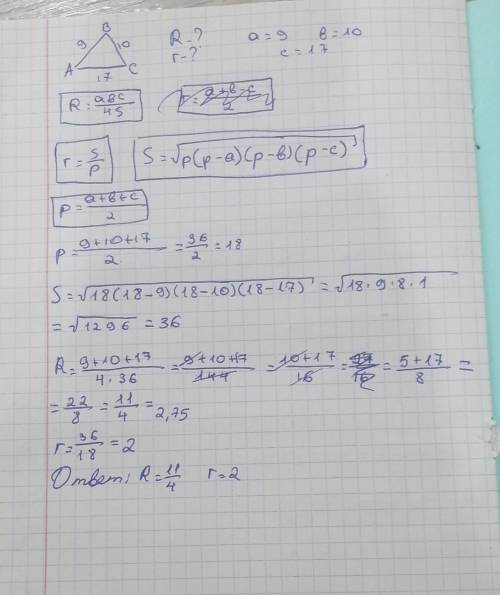 B
9 10
A 17 C
R-? a=9 в=10
r-? c=17
R=aвc/4S r=a+в-c/2
r=S/p S=√p(p-a)(p-в)(p-c)
p=a+в+c/2
p=9+10+17/2=36/2=18
S=√18(18-9)(18-10)(18-17)=√18·9·8·1
=√1296=36
R=9+10+17/4·36=9+10+17/144=10+17/16=27/16=5+17/8=
=22/8=11/4=2,75
r=36/18=2
Ответ: R=11/4 r=2